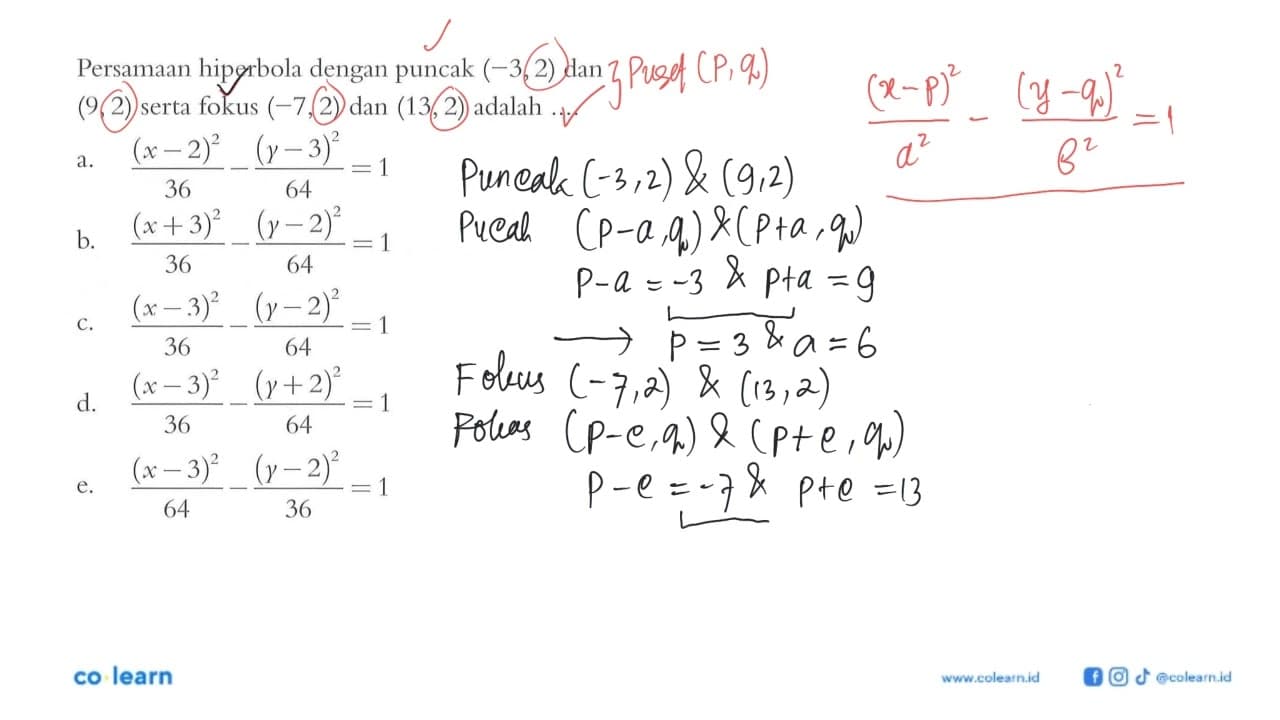 Persamaan hiperbola dengan puncak (−3, 2) dan
(9, 2) serta fokus (−7, 2) dan (13, 2) adalah ....
a. (x − 2)²/36 − (y − 3)²/64 = 1
b. (x + 3)²/36 − (y − 2)²/64 = 1
c. (x − 3)²/36 − (y − 2)²/64 = 1
d. (x − 3)²/36 − (y + 2)²/64 = 1
e. (x − 3)²/64 − (y − 2)²/36 = 1
} Pusat (P, q)
(x − p)²/a² − (y − q)²/b² = 1
Puncak (-3,2) & (9,2)
Pucak (p-a, q) & (p+a, q)
p-a = -3 & p+a = 9
→ p = 3 & a = 6
Fokus (-7,2) & (13,2)
Fokus (p-c, q) & (p+c, q)
p-c = -7 & p+c = 13
co learn
www.colearn.id
@colearn.id